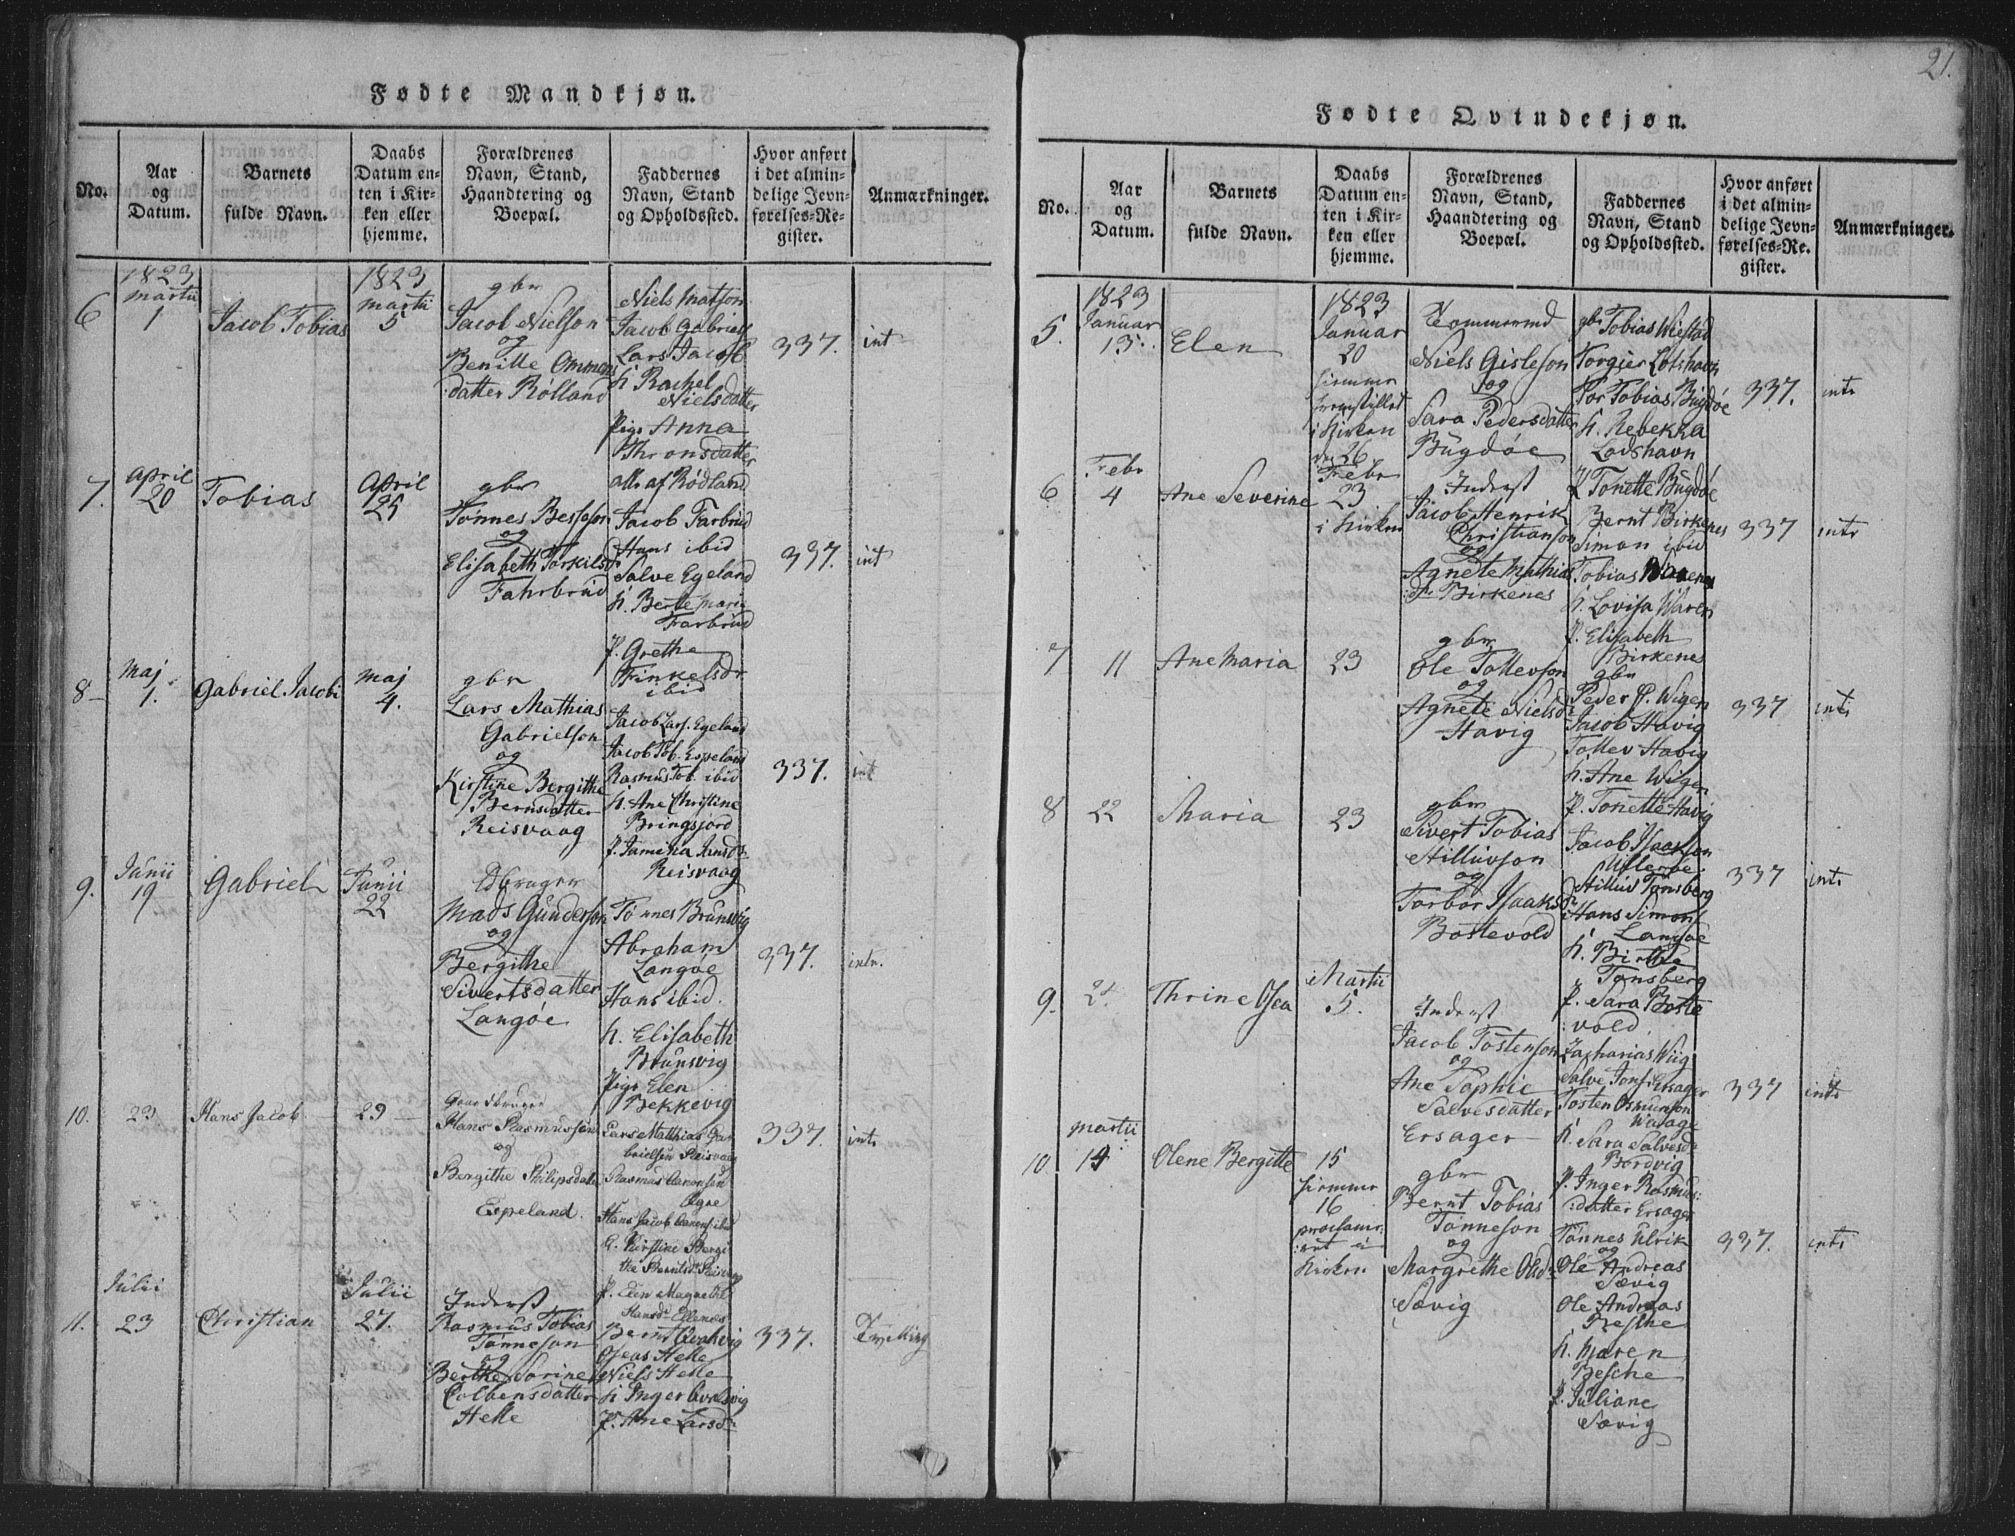 Fødte Mandkjøn.
No.
Aar
og
Datum.
Barnets
fulde Navn.
Daabs
Datum en-
ten i Kir-
ken eller
hjemme.
Forældrenes
Navn, Stand,
Haandtering og
Boepæl.
Faddernes
Navn, Stand
og Opholdssted.
Hvor anført
i det almin-
delige Jevn-
førelses-Re-
gister.
Anmærkninger.
6
1823
martii
1
Jacob Tobias
1823
martii
5
gbr
Jacob Nielson
og
Benille Ommens
datter Rölland
Niels Matson
Jacob Gabriels
Lars Jacob
h. Rachel
Nielsdatter
Pige Anna
Thronsdatter
alle af Rödland
337.
int
7.
April
20
Tobias
April
25
gbr
Tönnes Besseson
og
Elisabeth Torkilsd
Fahrbrüd
Jacob Farbrüd
Hans ibid
Salve Egeland
h. Berte Maria
Farbrüd
p. Grethe
Trinkelsdr
ibid
337.
int
8
Maj
1.
Gabriel Jacobi
Maj
4.
gbr
Lars Mathias
Gabrielson
og
Kirstine Bergithe
Berndatter
Reisvaag
Jacob Lars. Egeland
Jacob Tob. Espeland
Rasmus Tob. ibid
h. Ane Christine
Bringsjord
p. Jamina
Reisvaag
337.
int
9.
Junii
19
Gabriel
Junii
22
Mads Gunderson
og
Bergithe
Sivertsdatter
Langöe
Tönnes Brunsvig
Abraham
Langöe
Hans ibid.
h. Elisabeth
Brunsvig
Pige Elen
Bekkevig
337.
intr.
10.
23
Hans Jacob
29
Gaardbruger
Hans Rasmussen
og
Bergithe Philipsdatter
Espeland.
Lars Matthias Ga-
brielsen Reisvaag
Rasmus Aanonsen
Hans Jacob
337.
intr
11.
Julii
23
Christian
Julii
27.
Inderst
Rasmus Tobias
Tönneson
og
Berthe Sorine
Colbensdatter
Helle
p. Elen
Oseas Helle
Niels Helle
p. Ane Larsdr
337.
Tvelling
21.
Fødte Qvindekjøn.
No.
Aar
og
Datum.
Barnets
fulde Navn.
Daabs
Datum en-
ten i Kir-
ken eller
hjemme.
Forældrenes
Navn, Stand,
Haandtering og
Boepæl.
Faddernes
Navn, Stand
og Opholdssted.
Hvor anført
i det almin-
delige Jevn-
førelses-Re-
gister.
Anmærkninger.
5.
1823
Januar
13.
Elen
1823
Januar
20
hiemme
fremstillet
i Kirken
den 26
Tömmermd
Niels Gisleson
og
Sara Pedersdatter
Bugdöe
gbr Tobias Wiestad
Torgier Lotshavn
Por Tobias Bugdöe
h. Rebekka
Lodshavn
p. Tonette Bugdöe
337.
intr
6
Febr
4
Ane Severine
Febr
23
i Kirken
Inderst
Jacob Henrik
Christianson
og
Agnete Mathias
d. Birkenes
Bernt Birkenes
Simon ibid
Tobias Waren
h. Lovisa Waren
p. Elisabeth
Birkenes
337
intr
7
11
Ane Maria
23
gbr
Ole Tollevson
og
Agnete Nielsdr
Havig
gbr
Peder P. Wigen
Jacob Havig
Tollev Havig
h. Ane Wigen
p. Tonette Havig
337
intr
8
22
Maria
23
gbr
Sivert Tobias
Stilluvson
og
Torbor Isaaksdr
Bostevold
Jacob Isaakson
Stilluv Tonsberg
Hans Simons
Langöe
h. Birthe
Tonsberg
p. Sara Boste
vold
337
intr
9.
24
Thrine Osea
Martii
5.
Inderst
Jacob Tostenson
og
Ane Sophie
Salvesdatter
Ersager
Zacharias Wiig
Salve Jons. Ersager
Tosten Osmunson
h. Sara Salvesdr
Bordvig
p. Inger Rasmus
datter Ersager
337
intr
10.
martii
14
Olene Bergitte
15
hiemme
16
proclame-
ret i
Kirken
gbr
Bernt Tobias
Tönneson
og
Margrethe Olsdr
Sævig
Tönnes Ulrik
og
Ole Andreas
Sævig
Ole Andreas
Resche
h. Maren
Resche
p. Juliane
Sævig
337.
intr